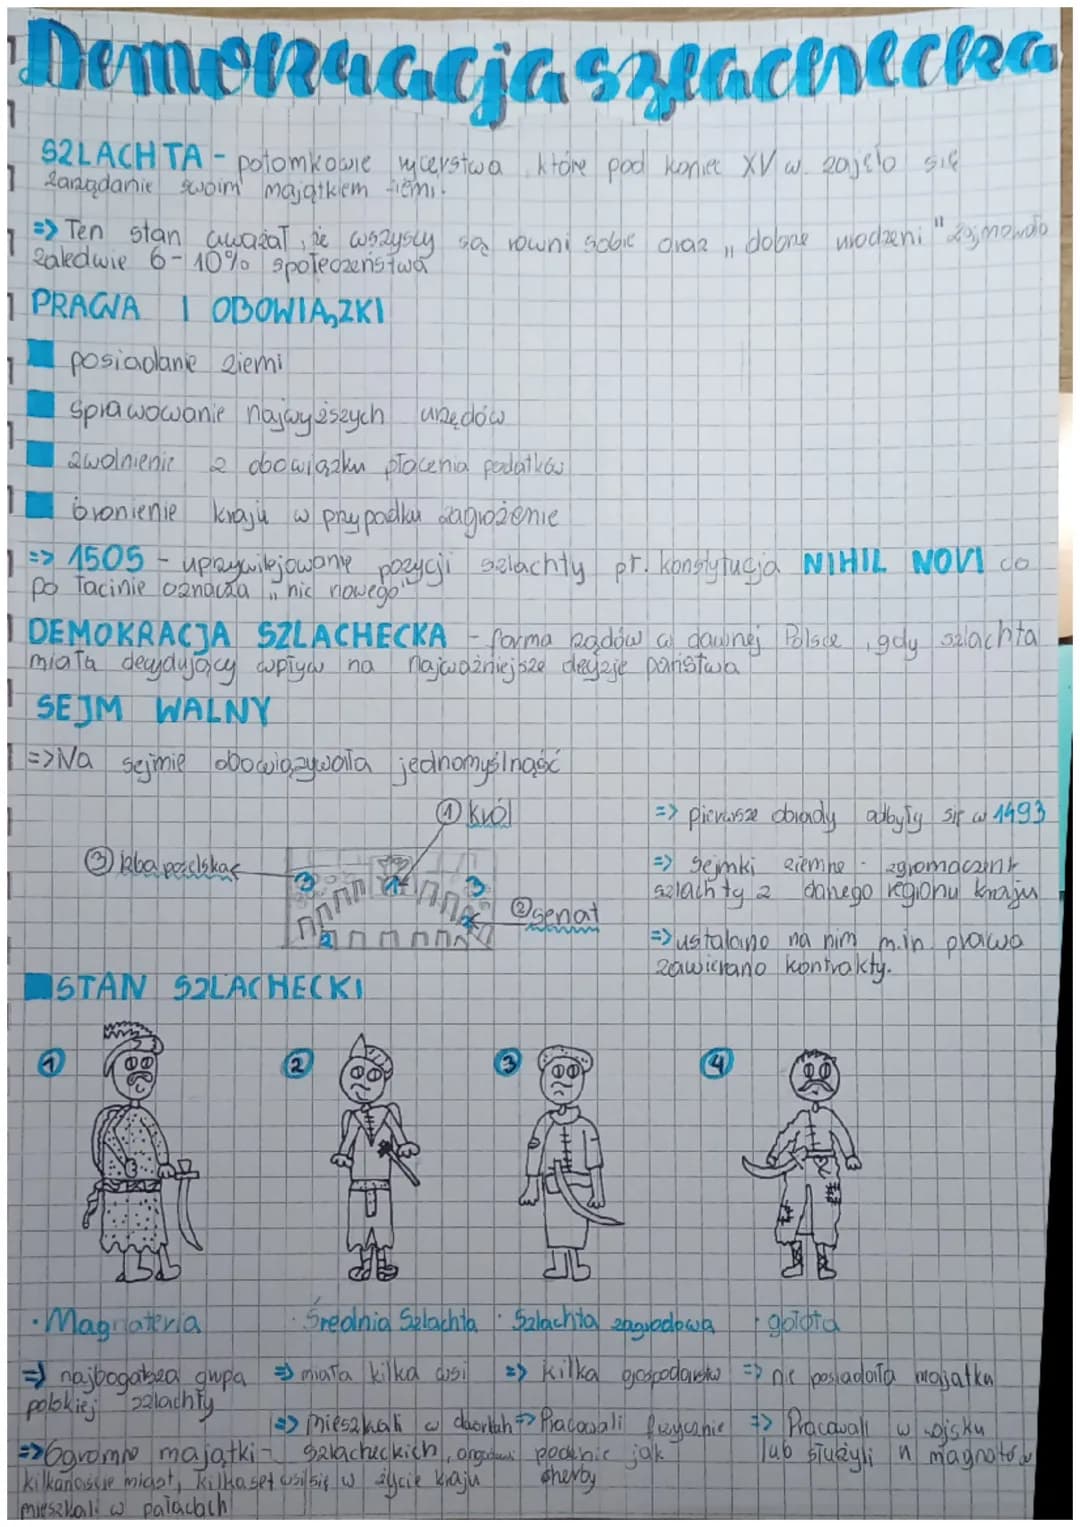 Demokracja szlachecka
SZLACHTA - potomkowie rycerstwa, które pod koniec XV w. zajęło się
zarządanie swoim majątkiem ziemi.
=> Ten stan uważał, że wszyscy są równi sobie oraz „dobrne urodzeni" zajmowało
zaledwie 6-10% społeczeństwa
PRAWA I OBOWIĄZKI
posiadanie ziemi
sprawowanie najwyższych urzędów
zwolnienie z obowiązku płacenia podatków
bronienie kraju w przypadku zagrożenie
=> 1505 - uprzywilejowanę pozycji szlachty pt. konstytucja NIHIL NOVI co
po łacinie oznacza „nic nowego"
DEMOKRACJA SZLACHECKA - forma rządów w dawnej Polsce, gdy szlachta
miała decydujący wpływ na najważniejsze decyzje państwa
SEJM WALNY
=> Na sejmie obowiązywała jednomyślność
① Król
=> pierwsze obrady odbyły się w 1493
③ izba poselska
3 1 3
=> Sejmki ziemne - zgromadzenie
szlachty z danego regionu kraju
② senat
2 2
=> ustalano na nim m.in prawa
zawierano kontrakty.
STAN SZLACHECKI
1 2 3 4
· Magnateria · Średnia Szlachta · Szlachta zagrodowa · gołota
=> najbogatsza grupa
polskiej szlachty
=> Ogromne majątki -
kilkanaście miast, kilkaset wsi
mieszkali w pałacach
=> miała kilka wsi
=> mieszkali w dworkach
szlacheckich,
się w życie kraju
=> kilka gospodarstw
=> Pracowali fizycznie
podobnie jak
=> nie posiadała majątku
=> Pracowali w wojsku
lub służyli u magnatów